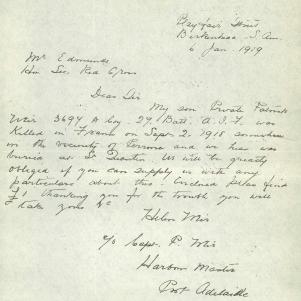 Playfair Street
Birkenhead S. Aus
6 Jan. 1919
Mr Edmunds
Hon Sec. Red Cross
Dear Sir
My son Private Patrick
Weir 3697 A Coy. 27. Batt. A. I. F. was
Killed in France on Sept 2. 1918 somewhere
in the vicinity of Perrone and we hear was
buried at St Quentin we will be greatly
obliged if you can supply us with any
particulars about this Enclosed please find
thanking you for the trouble you will
take yours &c
Helen Weir
c/o Capt. P. Weir
Harbour Master
Port Adelaide